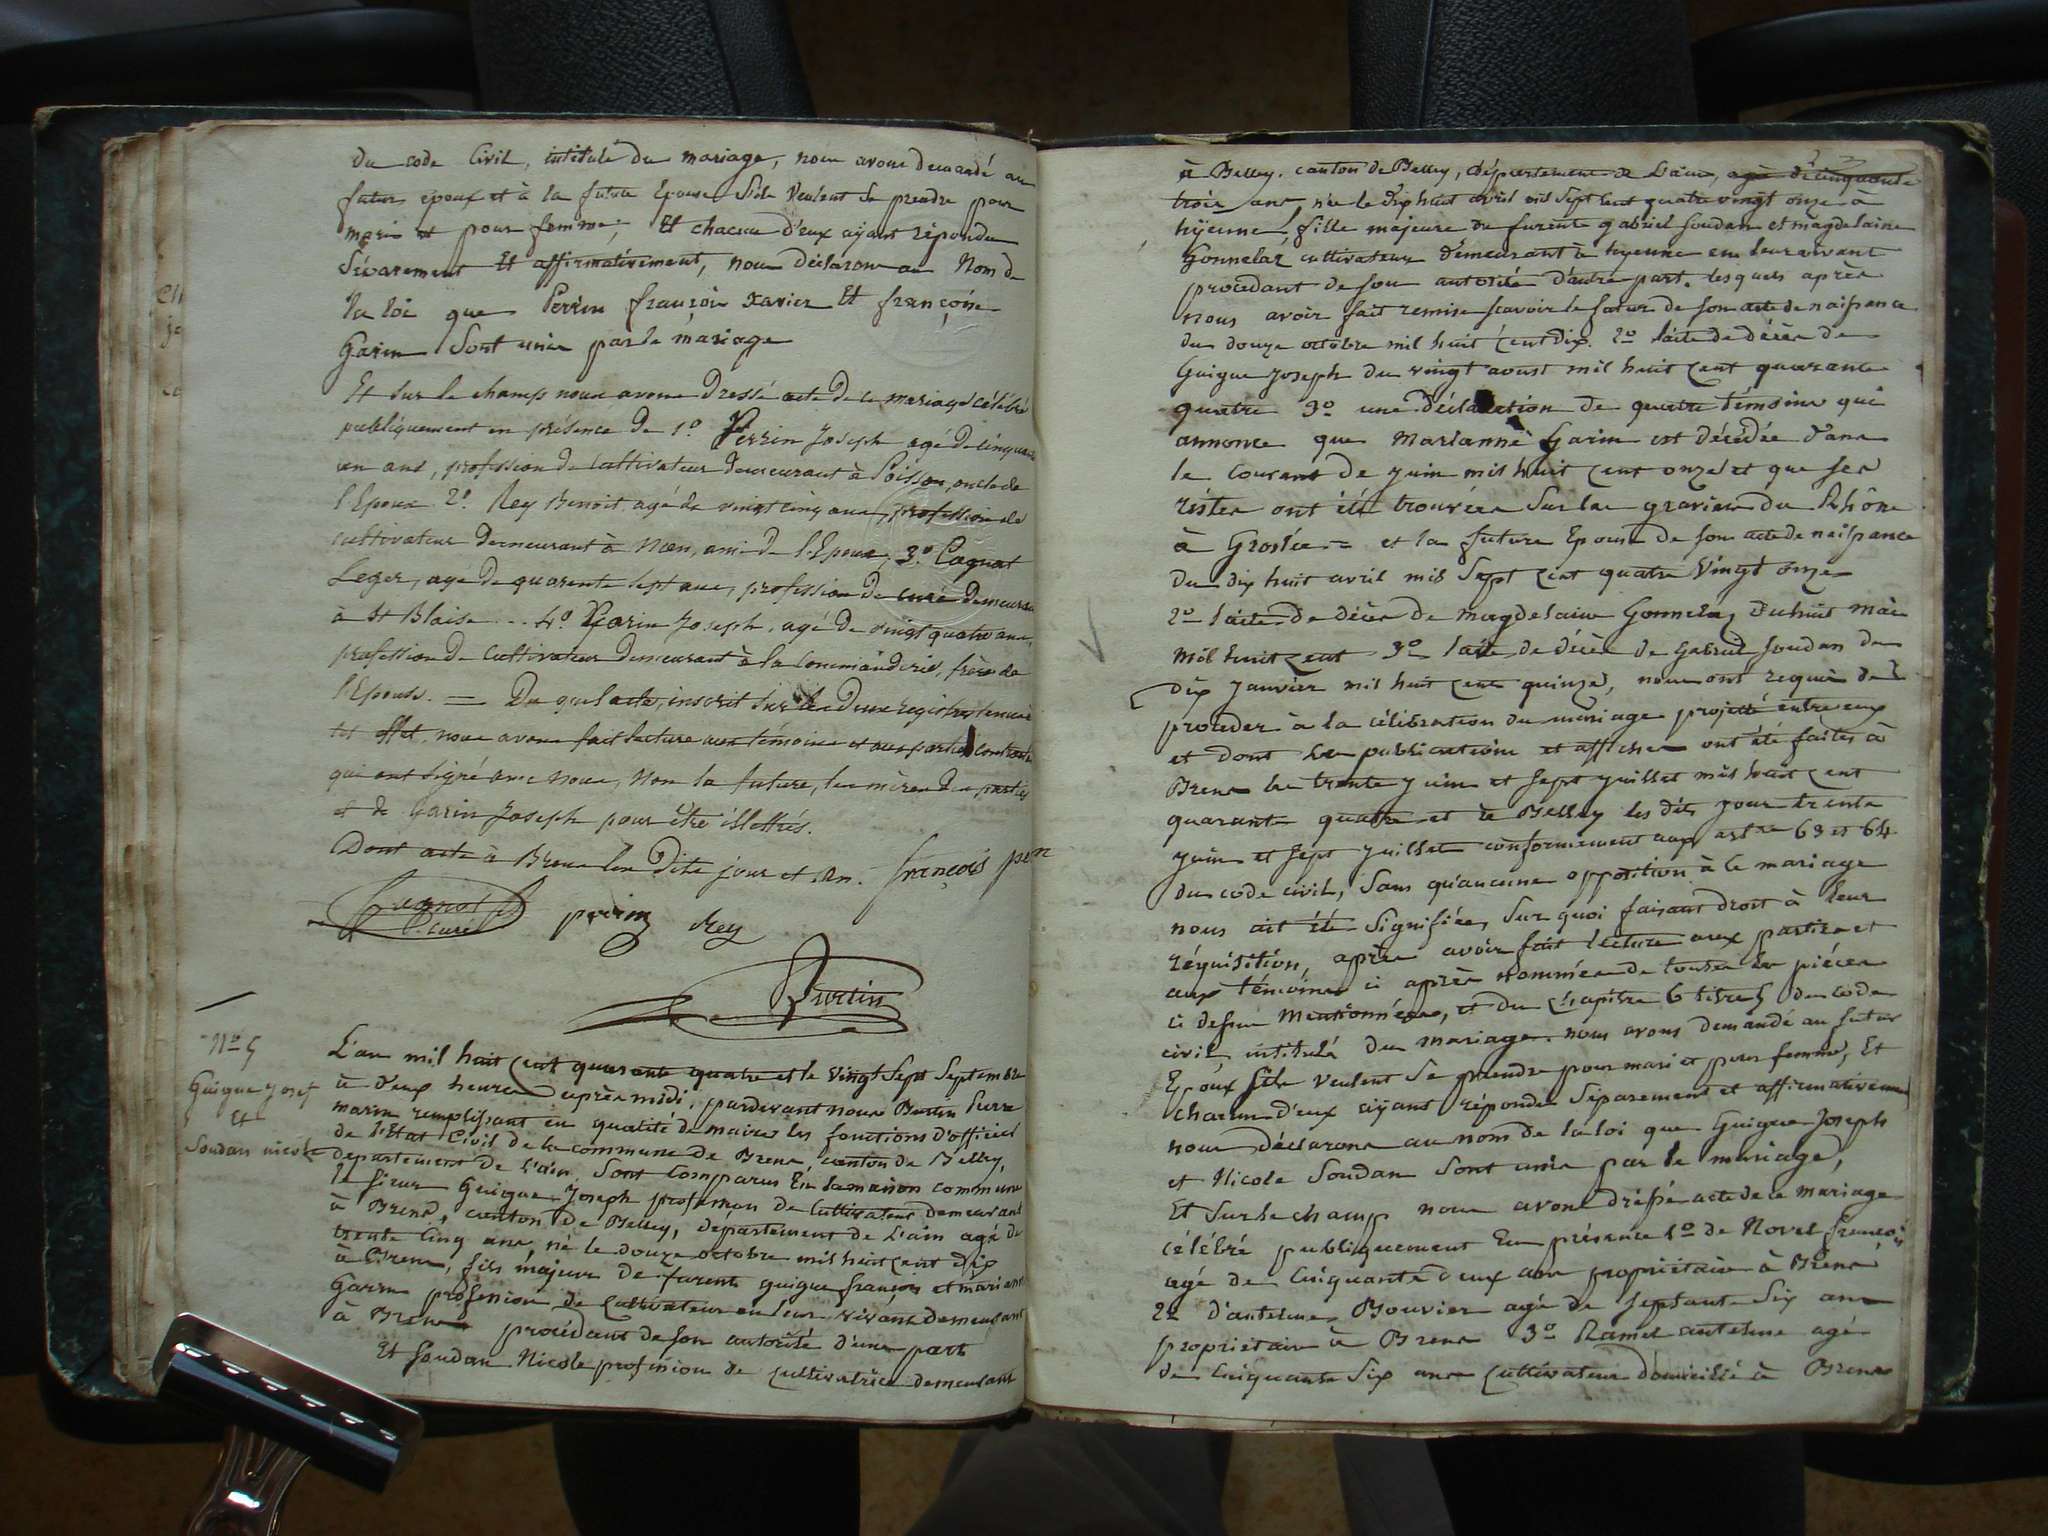 du code Civil, intitulé du mariage, nous avons demandé au
futur epoux et à la future Epouse S'ils Veulent Se prendre pour
mari et pour femme; Et chacun d'eux aÿant répondu
Séparement Et affirmativement, nous déclarons au Nom de
la loi que Perrin françois Xavier Et françoise
Garin Sont unis par le mariage
Et Sur le champs nous avons Dressé acte de ce mariage célébré
publiquement en présence de 1º Perrin Joseph agé de cinquante
un ans, profession de Cultivateur demeurant à Poisson, oncle de
l'Epoux 2º. Rey Benoit agé de vingt cinq ans, profession de
cultivateur demeurant à ami de l'Epoux, 3º. Cagnot
Leger, agé de quarente Sept ans, profession de curé demeurant
à St Blaise ... 4º Garin Joseph, agé de vingt quatre ans,
profession de Cultivateur demeurant à la Commanderie, frère de
l'Epouse. = Du quel acte, inscrit Sur les deux régistres tenus à
tet Effet, nous avons fait lecture aux témoins et aux parties contractantes
qui ont Signé avec nous, Non la future, les mères des parties
et de Garin Joseph pour être illettrés.
Dont acte à Brens les Dits jour et an. françois
Cagnot
Curé
perrin Rey
Burtin
Nº 5
Guigue Josef
Et
Soudan nicole
L'an mil huit Cent quarante quatre et le Vingt Sept Septembre
à deux heures après midi, pardevant nous Burtin Pierre
marin remplissant en qualité de maire les fonctions d'officié
de l'Etat Civil de la commune de Brens, canton de Belley,
departement de l'ain, Sont Comparus En la maison commune
le Sieur Guigue Joseph profession de Cultivateur demeurant
à Brens, canton de Belley, département de L'ain agé de
trente Cinq ans, né le douze octobre mil huit cent dix
à Brens, fils majeur de furent guigue françois et mariane
Garin profession de Cultivateur en leur vivant demeurant
à Brens procédant de son autorité d'une part
Et Soudan Nicole profession de Cultivatrice demeurant
à Belley. canton de Belley, département de L'ain, agé de cinquante
trois ans, née le dix huit avril mil Sept Cent quatre vingt onze à
hÿenne, fille majeure de furent gabriel Soudan et magdelaine
Gonnelaz cultivateur demeurant à hyenne en leur vivant
procédant de son autorité d'autre part. lesquels après
nous avoir fait remise Scavoir le futur de son acte de naissance
du douze octobre mil huit Cent dix. 2º l'acte de décès de
Guigue Joseph du vingt aoust mil huit Cent quarante
quatre 3º une déclaration de quatre témoins qui
annonce que Marianne Garin est décédée dans
le Courant de juin mil huit Cent onze et que ses
réstes ont été trouvées Sur les graviers du Rhône
à Groslée = et la future Epouse de son acte de naissance
du dix huit avril mil Sept Cent quatre Vingt onze
2º l'acte de décès de Magdelaine Gonnelaz du huit mai
mil huit Cent 3º l'acte de décès de Gabriel Soudan du
dix Janvier mil huit Cent quinze, nous ont requis de
proceder à la célébration du mariage projetté entre eux
et dont les publications et affiches ont été faites à
Brens les trente juin et Sept juillet mil huit Cent
quarante quatre et à Belley les dits jours trente
juin et Sept juillet conformement aux artres 63 et 64
du code civil, Sans qu'aucune opposition à le mariage
nous ait été Signifiée, Sur quoi faisant droit à leur
réquisition, après avoir fait lecture aux parties et
aux témoins ci après nommés de toutes les pièces
ci dessus Mentionnées, et du chapitre 6 titre 5 du code
civil, intitulé du mariage. nous avons demandé au futur
Epoux S'ils veulent Se prendre pour mari et pour femme, Et
chacun d'eux aÿant répondu Séparement et affirmativement
nous déclarons au nom de la loi que Guigue Joseph
et Nicole Soudan Sont unis par le mariage,
Et Sur le champ nous avons dréssé acte de ce mariage
célébré publiquement En présence 1º de Novel françois
agé de Cinquante deux ans propriétaire à Brens
2º d'antelme Bouvier agé de Septante Six ans
propriétaire à Brens 3º Ramel antelme agé
de Cinquante Six ans Cultivateur domicilié à Brens